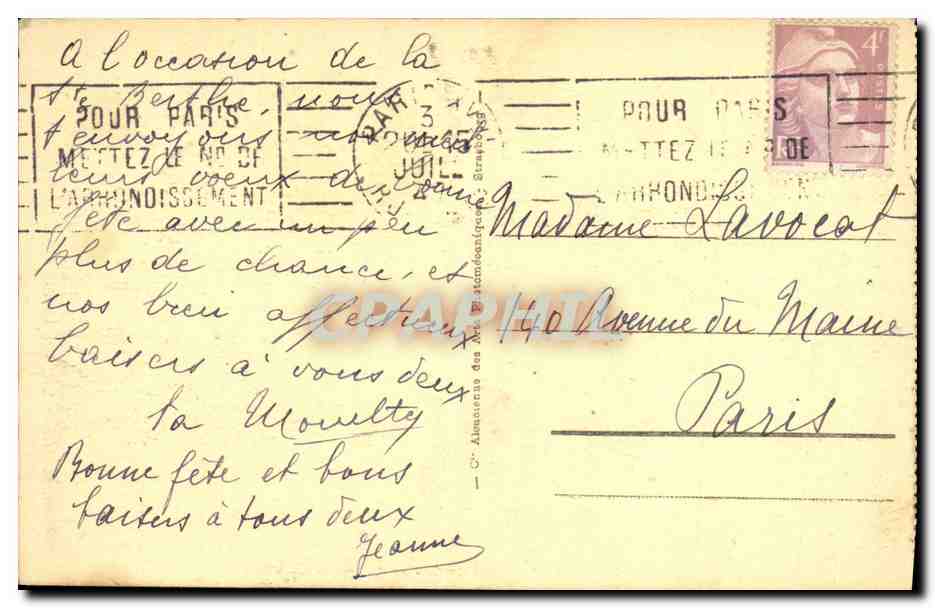 A l'occasion de la
Ste Berthe, nous
t'envoyons nos meil
leurs voeux de bonne
fête avec un peu
plus de chance, et
nos bien affectueux
baisers à vous deux
ta
Bonne fête et bons
baisers à tous deux
Jeanne
POUR PARIS
METTEZ LE NO DE
L'ARRONDISSEMENT
PARIS
3
JUIL
POUR PARIS
METTEZ LE NO DE
L'ARRONDISSEMENT
4F
Cie Alsacienne des Arts Photomécaniques, Strasbourg
Madame Lavocat
140 Avenue du Maine
Paris
CPAPHIL